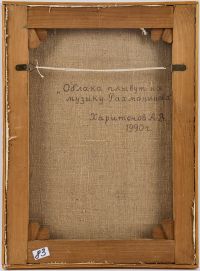 „Облака плывут на
музыку Рахманинова"
Харитонов А.В.
1990г.
83